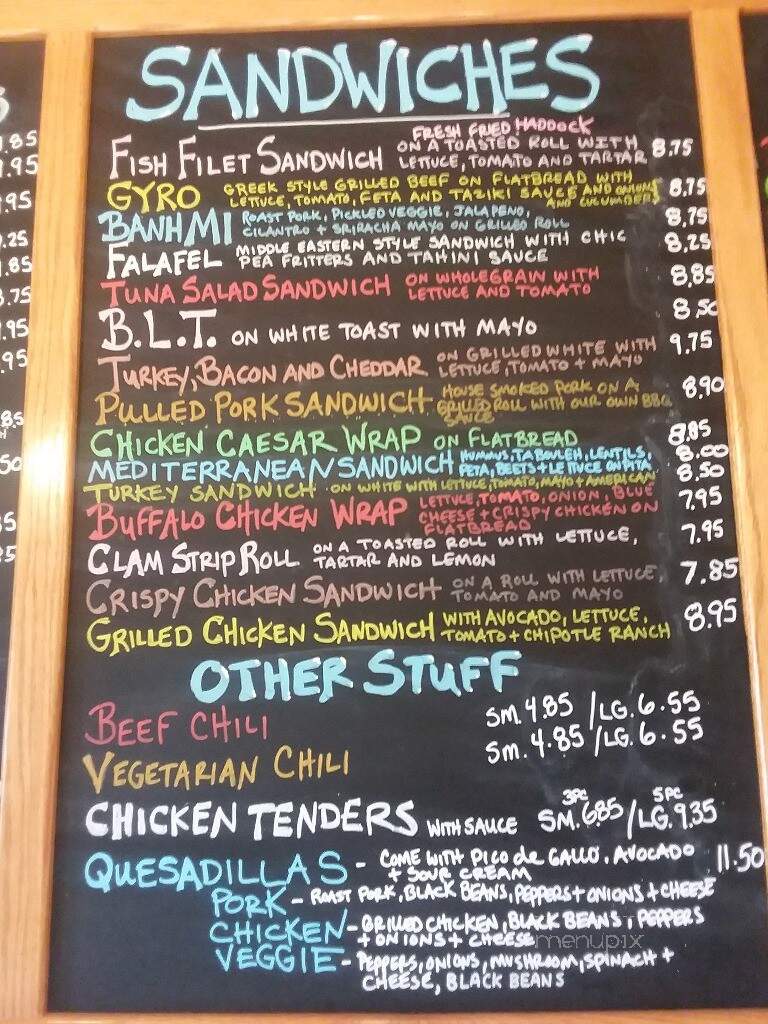 SANDWICHES
FRESH FRIED HADDOCK
FISH FILET SANDWICH ON A TOASTED ROLL WITH 8.75
LETTUCE, TOMATO AND TARTAR
GYRO GREEK STYLE GRILLED BEEF ON FLATBREAD WITH 8.75
LETTUCE, TOMATO, FETA AND TAZIKI SAUCE AND ONIONS
AND CUCUMBERS
BANH MI ROAST PORK, PICKLED VEGGIE, JALAPENO, 8.75
CILANTRO + SRIRACHA MAYO ON GRILLED ROLL
FALAFEL MIDDLE EASTERN STYLE SANDWICH WITH CHIC 8.25
PEA FRITTERS AND TAHINI SAUCE
TUNA SALAD SANDWICH ON WHOLEGRAIN WITH 8.85
LETTUCE AND TOMATO
B.L.T. ON WHITE TOAST WITH MAYO 8.50
TURKEY, BACON AND CHEDDAR ON GRILLED WHITE WITH 9.75
LETTUCE, TOMATO + MAYO
PULLED PORK SANDWICH HOUSE SMOKED PORK ON A 8.90
GRILLED ROLL WITH OUR OWN BBQ
SAUCE
CHICKEN CAESAR WRAP ON FLATBREAD 8.85
MEDITERRANEAN SANDWICH HUMMUS, TABOULEH, LENTILS, 8.00
FETA, BEETS + LETTUCE ON PITA
TURKEY SANDWICH ON WHITE WITH LETTUCE, TOMATO, MAYO + AMERICAN 8.50
BUFFALO CHICKEN WRAP LETTUCE, TOMATO, ONION, BLUE 7.95
CHEESE + CRISPY CHICKEN ON
FLATBREAD
CLAM STRIP ROLL ON A TOASTED ROLL WITH LETTUCE, 7.95
TARTAR AND LEMON
CRISPY CHICKEN SANDWICH ON A ROLL WITH LETTUCE, 7.85
TOMATO AND MAYO
GRILLED CHICKEN SANDWICH WITH AVOCADO, LETTUCE, 8.95
TOMATO + CHIPOTLE RANCH
OTHER STUFF
BEEF CHILI SM. 4.85 / LG. 6.55
VEGETARIAN CHILI SM. 4.85 / LG. 6.55
3PC 5PC
CHICKEN TENDERS WITH SAUCE SM. 6.85 / LG. 9.35
QUESADILLAS - COME WITH PICO de GALLO, AVOCADO 11.50
+ SOUR CREAM
PORK - ROAST PORK, BLACK BEANS, PEPPERS + ONIONS + CHEESE
CHICKEN - GRILLED CHICKEN, BLACK BEANS, PEPPERS
+ ONIONS + CHEESE
menupix
VEGGIE - PEPPERS, ONIONS, MUSHROOM, SPINACH +
CHEESE, BLACK BEANS